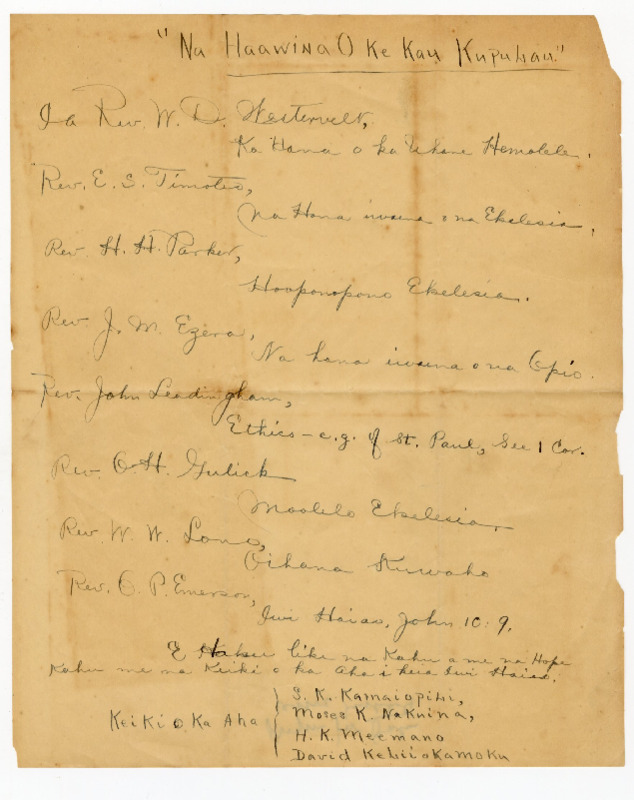 "Na Haawina O Ke Kau Kupulau"
I a Rev. W. D. Westervelt,
Ka Hana o ka Uhane Hemolele.
Rev. E. S. Timoteo,
Na Hana iwaena o na Ekelesia,
Rev. H. H. Parker,
Hooponopono Ekelesia.
Rev. J. M. Ezera,
Na hana iwaena o na Opio.
Rev. John Leadingham,
Ethics - e.g. of St. Paul, See 1 Cor.
Rev. O. H. Gulick
Moolelo Ekelesia,
Rev. W. W. Long,
Oihana Kuwaho
Rev. O. P. Emerson,
Iwi Haiao, John 10:9.
E like na Kahu a me na Hope
Kahu me na Keiki o ka Aha i keia Iwi Haiao.
Keiki o Ka Aha
S. K. Kamaiopili,
Moses K. Nakuina,
H. K. Meemano
David Keliiokamoku